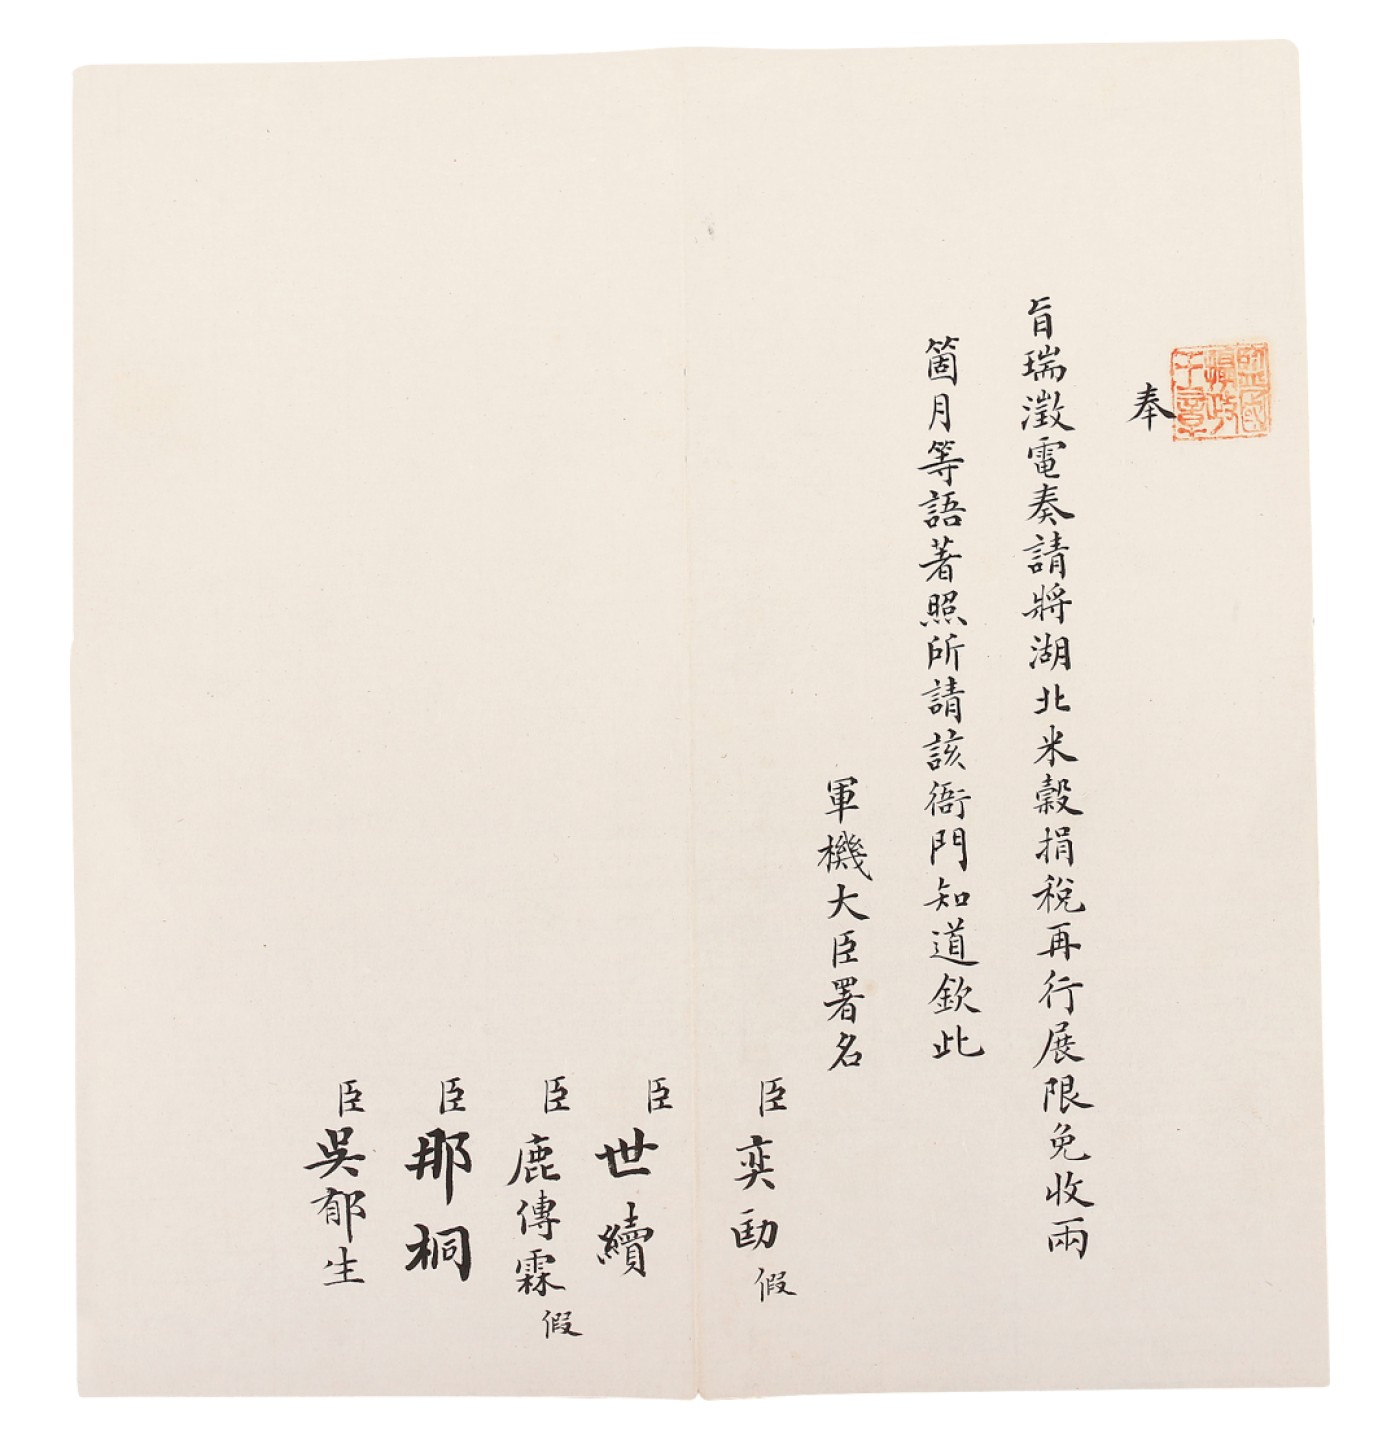 監國攝政王章
奉
旨瑞澂電奏請將湖北米穀捐稅再行展限免收兩
箇月等語著照所請該衙門知道欽此
軍機大臣署名
臣奕劻假
臣世續
臣鹿傳霖假
臣那桐
臣吳郁生